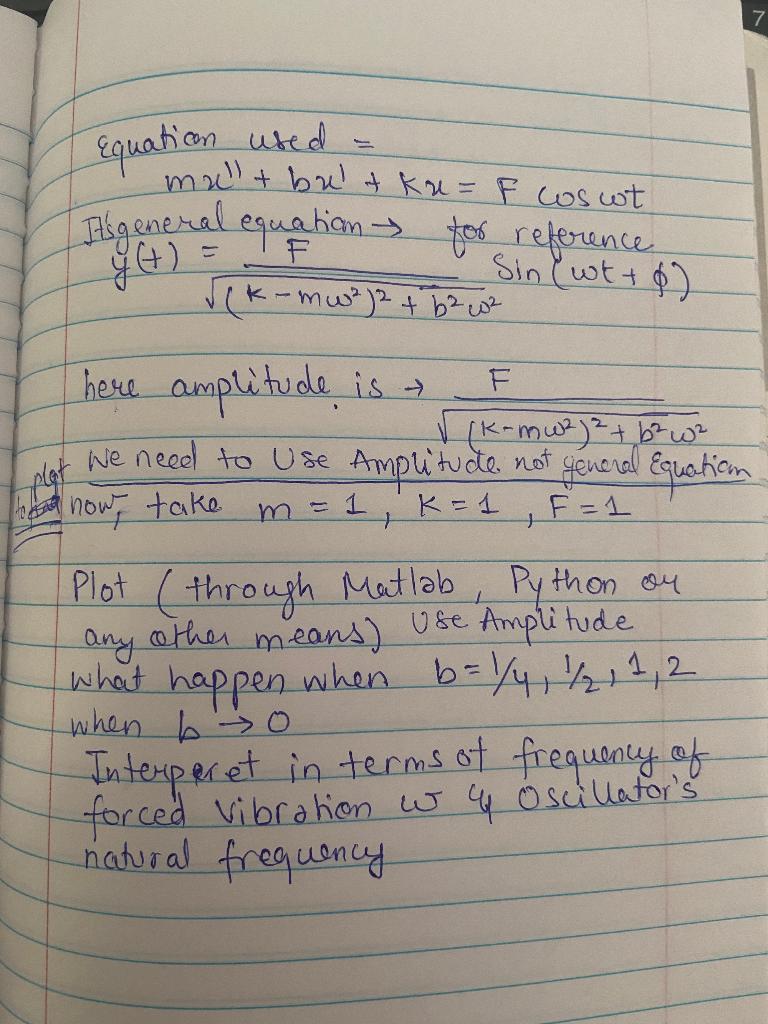 7
Equation used =
mx'' + bx' + Kx = F cos ωt
It's general equation → for reference
y(t) = F / √(K-mω²)² + b²ω² Sin (ωt + φ)
here amplitude is → F / √(K-mω²)² + b²ω²
We need to Use Amplitude not general Equation
to plot
now, take m = 1, K = 1, F = 1
Plot (through Matlab, Python or
any other means) Use Amplitude
what happen when b = 1/4, 1/2, 1, 2
when b → 0
Interperet in terms of frequency of
forced vibration ω & Oscillator's
natural frequency